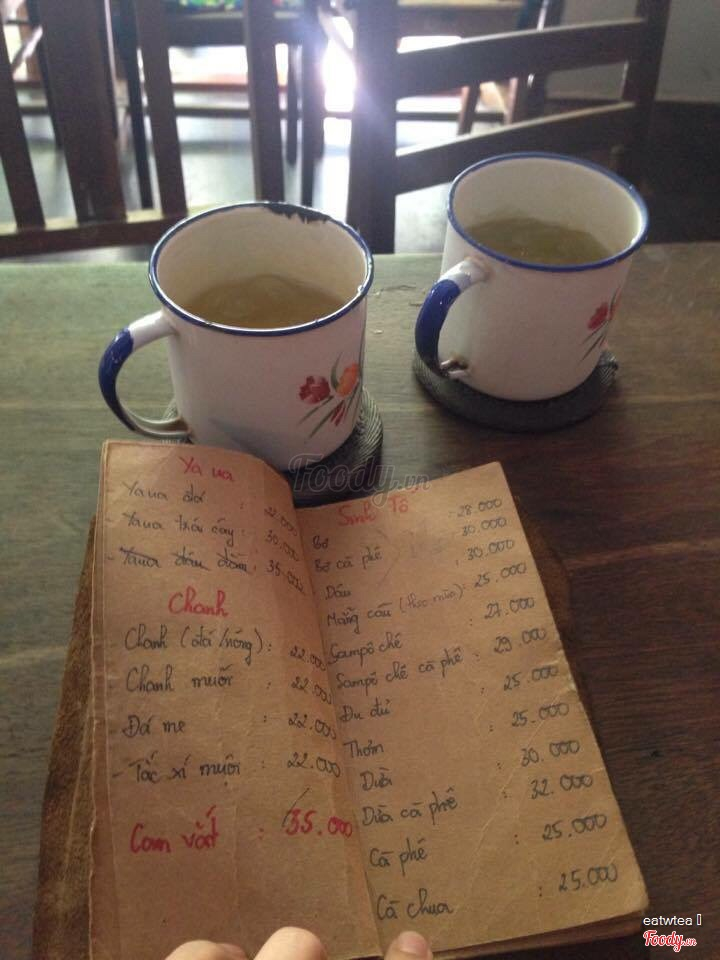 Ya ua
Yaua đá :
- Yaua trái cây : 30.000
- Yaua dâu dầm : 35.000
Chanh
Chanh (đá/nóng) : 22.000
Chanh muối : 22.000
Đá me : 22.000
- Tắc xí muội : 22.000
Cam vắt : 35.000
Sinh Tố
Bơ : 28.000
Bơ cà phê : 30.000
Dâu : 30.000
Mãng cầu (theo mùa) : 25.000
Sampô chê : 27.000
Sampô chê cà phê : 29.000
Đu đủ : 25.000
Thơm : 25.000
Dừa : 30.000
Dừa cà phê : 32.000
Cà phê : 25.000
Cà chua : 25.000
Foody.vn
eatwtea
Foody.vn